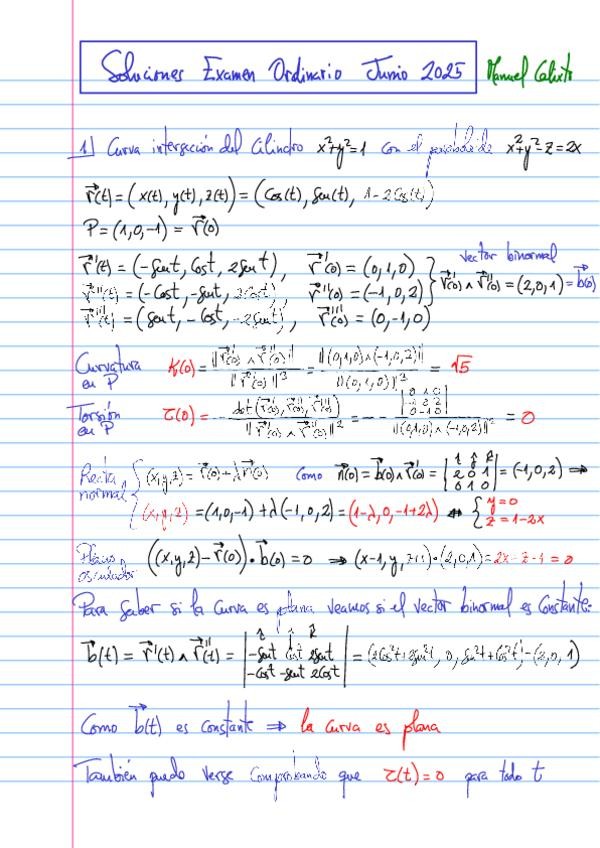 Soluciones Examen Ordinario Junio 2025 Manuel Calixto
1) Curva intersección del Cilindro x²+y²=1 con el paraboloide x²+y²-z=2x
r⃗(t)=(x(t), y(t), z(t))=(Cos(t), Sen(t), 1-2Cos(t))
P=(1,0,-1)=r⃗(0)
r⃗'(t)=(-sent, Cost, 2sent), r⃗'(0)=(0,1,0) vector binormal
r⃗''(t)=(-Cost, -sent, 2Cost), r⃗''(0)=(-1,0,2) } r⃗'(0)∧r⃗''(0)=(2,0,1)=b⃗(0)
r⃗'''(t)=(sent, -Cost, -2sent), r⃗'''(0)=(0,-1,0)
Curvatura en P K(0)= ||r⃗'(0)∧r⃗''(0)|| / ||r⃗'(0)||³ = ||(0,1,0)∧(-1,0,2)|| / ||(0,1,0)||³ = √5
Torsión en P τ(0)= - det(r⃗'(0), r⃗''(0), r⃗'''(0)) / ||r⃗'(0)∧r⃗''(0)||² = - |0 1 0; -1 0 2; 0 -1 0| / ||(0,1,0)∧(-1,0,2)||² = 0
Recta normal { (x,y,z)=r⃗(0)+λn⃗(0) como n⃗(0)=b⃗(0)∧r⃗'(0)= |i j k; 2 0 1; 0 1 0| =(-1,0,2) ⇒
(x,y,z)=(1,0,-1)+λ(-1,0,2)=(1-λ,0,-1+2λ) ⇔ { y=0 z=1-2x
Plano osculador ((x,y,z)-r⃗(0))·b⃗(0)=0 ⇒ (x-1,y,z+1)·(2,0,1)=2x+z-1=0
Para saber si la curva es plana veamos si el vector binormal es constante:
b⃗(t)=r⃗'(t)∧r⃗''(t)= |i j k; -sent cost 2sent; -cost -sent 2cost| =(2Cos²t+2sen²t, 0, sen²t+Cos²t)=(2,0,1)
Como b⃗(t) es constante ⇒ la curva es plana
También puedo verse comprobando que τ(t)=0 para todo t